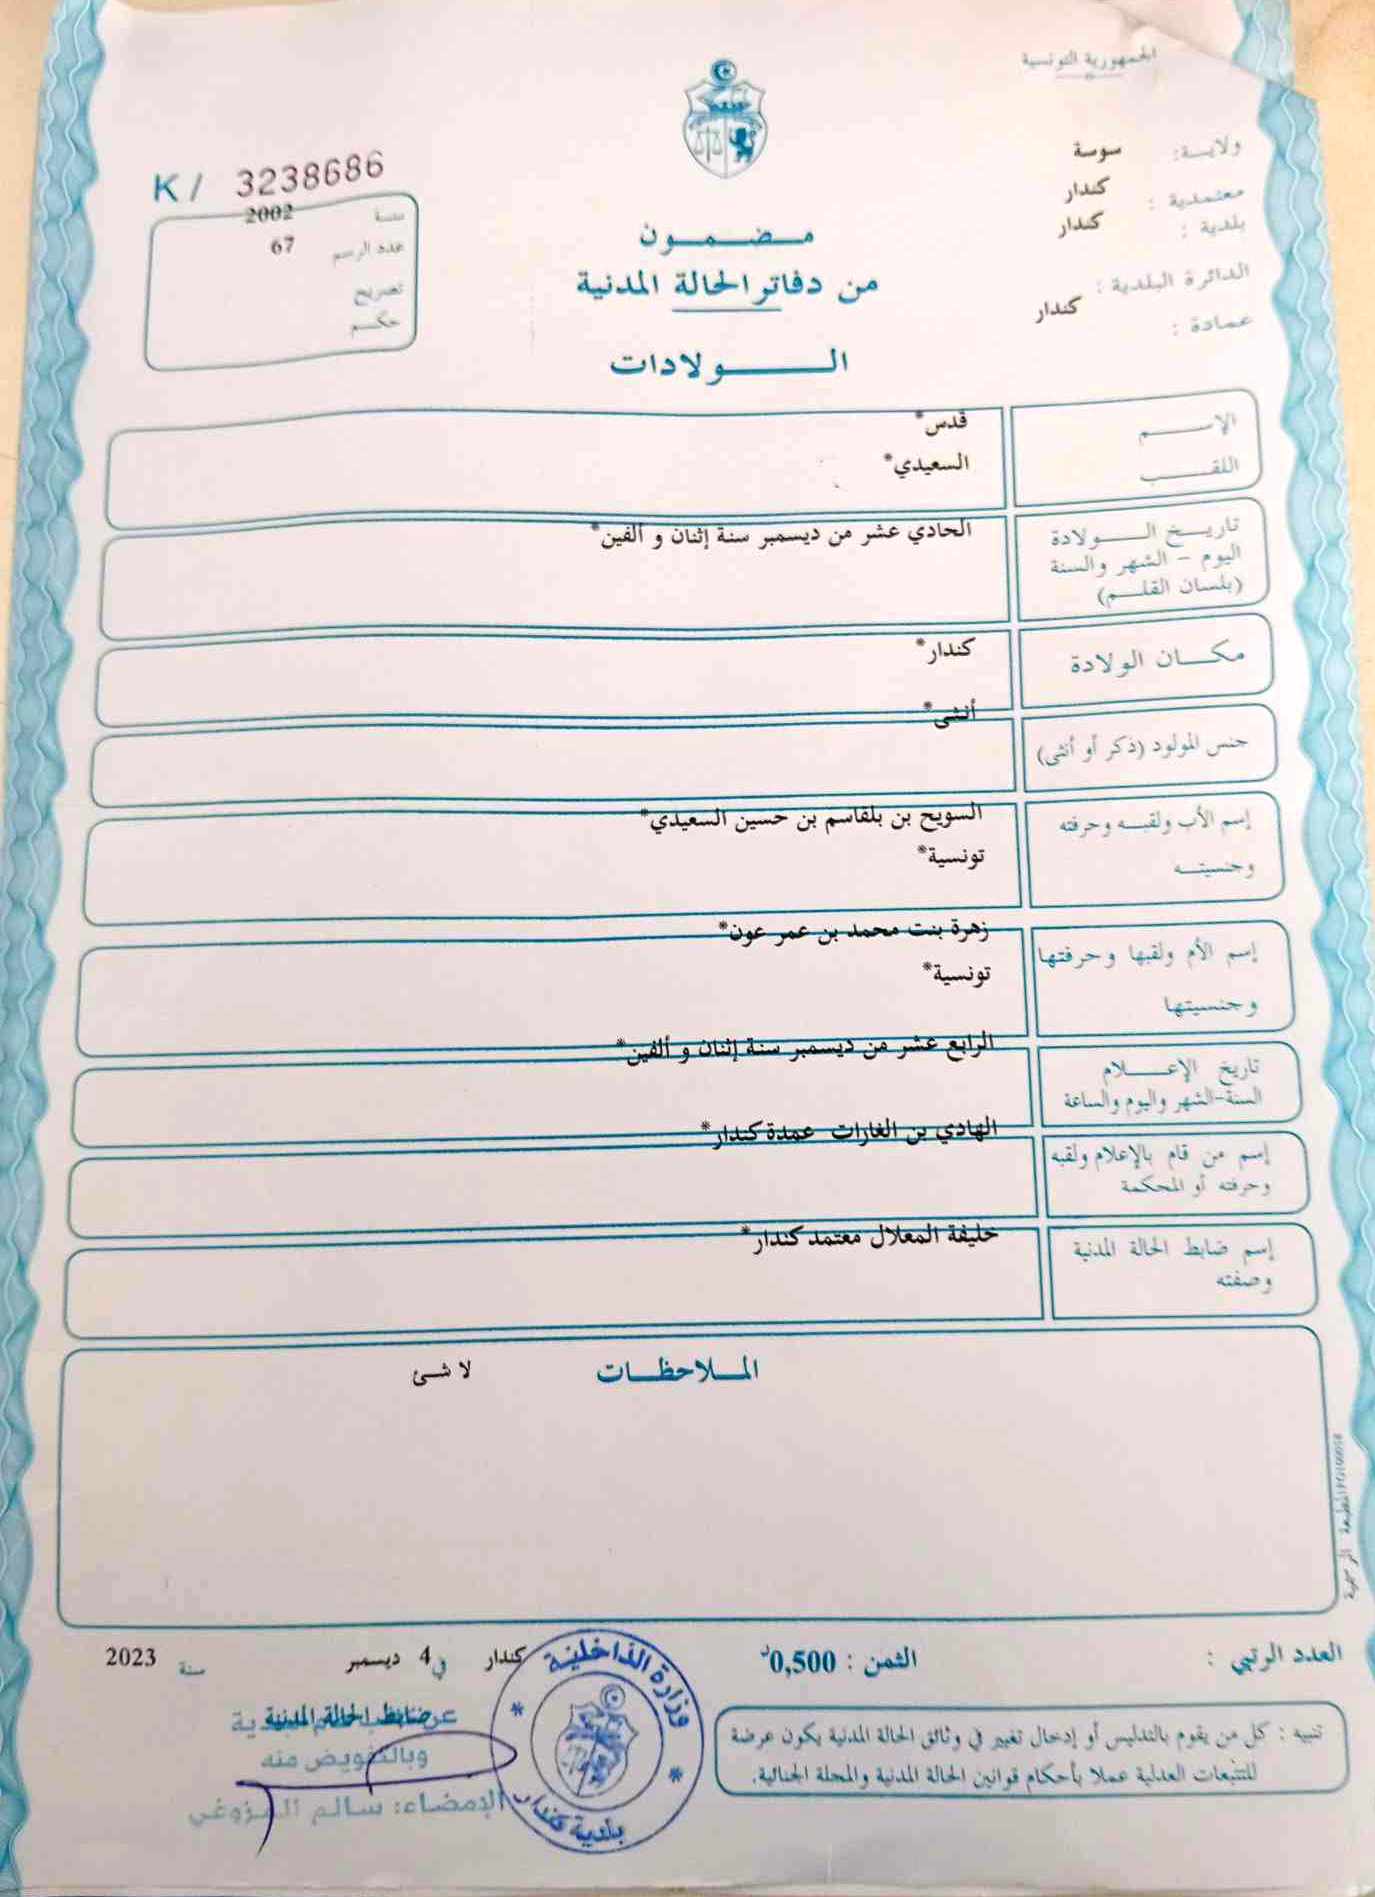 الجمهورية التونسية
ولاية: سوسة
معتمدية : كندار
بلدية : كندار
الدائرة البلدية :
عمادة : كندار
K / 3238686
سنة 2002
عدد الرسم 67
تصريح
حكم
مضمون
من دفاتر الحالة المدنية
الولادات
الإسم قدس*
اللقب السعيدي*
تاريخ الولادة الحادي عشر من ديسمبر سنة إثنان و ألفين*
اليوم - الشهر والسنة
(بلسان القلم)
مكان الولادة كندار*
جنس المولود (ذكر أو أنثى) أنثى*
إسم الأب ولقبه وحرفته السويح بن بلقاسم بن حسين السعيدي*
وجنسيته تونسية*
إسم الأم ولقبها وحرفتها زهرة بنت محمد بن عمر عون*
وجنسيتها تونسية*
تاريخ الإعلام الرابع عشر من ديسمبر سنة إثنان و ألفين*
السنة-الشهر واليوم والساعة
إسم من قام بالإعلام ولقبه الهادي بن الغارات عمدة كندار*
وحرفته أو المحكمة
إسم ضابط الحالة المدنية خليفة المعلال معتمد كندار*
وصفته
الملاحظات لا شئ
المطبعة الرسمية
العدد الرتبي :
الثمن : 0,500د
كندار في 4 ديسمبر سنة 2023
ضابط الحالة المدنية
وبالتفويض منه
الإمضاء: سالم المزوغي
وزارة الداخلية
بلدية كندار
تنبيه : كل من يقوم بالتدليس أو إدخال تغيير في وثائق الحالة المدنية يكون عرضة
للتتبعات العدلية عملا بأحكام قوانين الحالة المدنية والمجلة الجنائية.